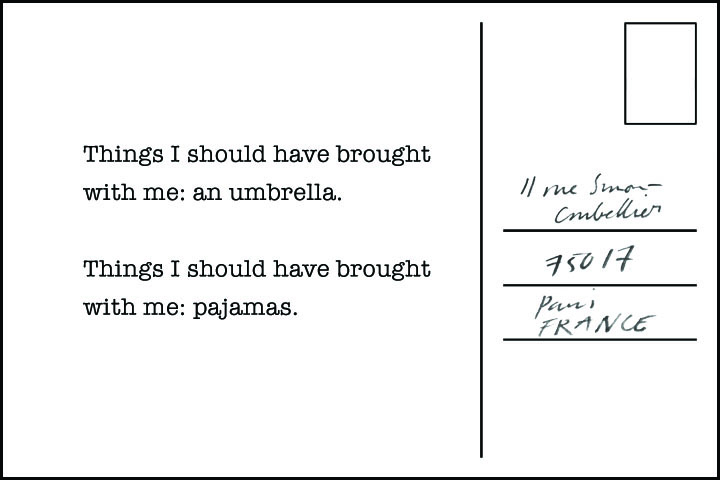 Things I should have brought
with me: an umbrella.
Things I should have brought
with me: pajamas.
11 rue
75017
Paris
FRANCE